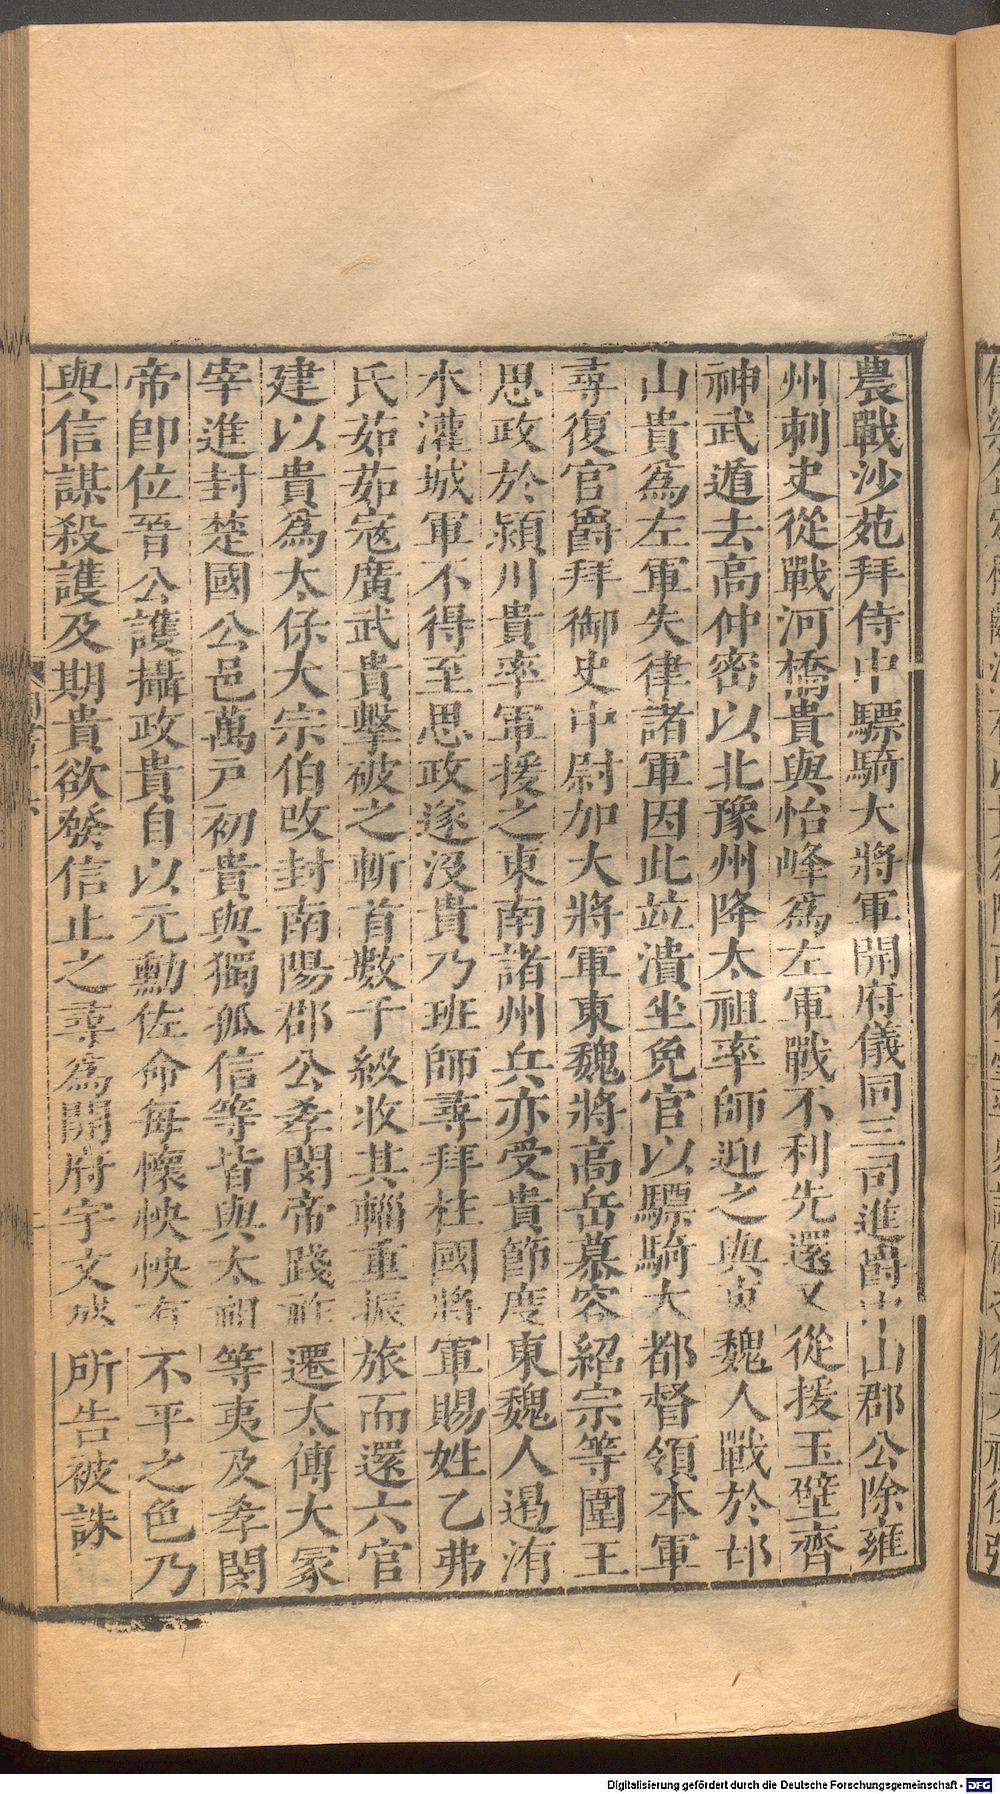 農戰沙苑拜侍中驃騎大將軍開府儀同三司進爵中山郡公除雍
州刺史從戰河橋貴與怡峰爲左軍戰不利先還又從援玉壁齊
神武遁去高仲密以北豫州降太祖率師迎之與東魏人戰於邙
山貴爲左軍失律諸軍因此竝潰坐免官以驃騎大都督領本軍
尋復官爵拜御史中尉加大將軍東魏將高岳慕容紹宗等圍王
思政於潁川貴率軍援之東南諸州兵亦受貴節度東魏人遏洧
水灌城軍不得至思政遂沒貴乃班師尋拜柱國將軍賜姓乙弗
氏茹茹寇廣武貴擊破之斬首數千級收其輜重振旅而還六官
建以貴爲太保大宗伯改封南陽郡公孝閔帝踐祚遷太傅大冢
宰進封楚國公邑萬戸初貴與獨孤信等皆與太祖等夷及孝閔
帝卽位晉公護攝政貴自以元勳佐命每懷怏怏有不平之色乃
與信謀殺護及期貴欲發信止之尋爲開府宇文盛所告被誅
Digitalisierung gefördert durch die Deutsche Forschungsgemeinschaft - DFG